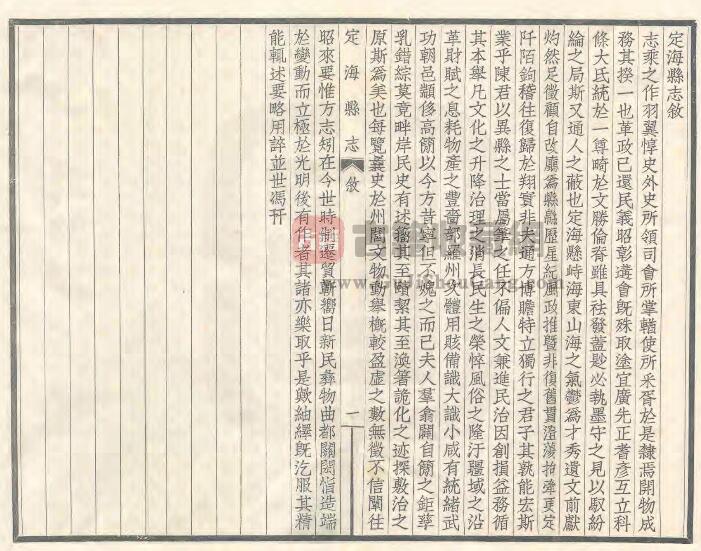 定海縣志敘
志乘之作羽翼惇史外史所領司會所掌轄使所釆胥於是隸焉開物成
務其揆一也革政已還民義昭彰遺會旣殊取塗宜廣先正耆彥互立科
條大氐統於一尊畸於文勝倫脊雖具祛發蓋尟必執墨守之見以馭紛
綸之局斯又通人之蔽也定海縣峙海東山海之氣鬱爲才秀遺文前獻
灼然足徵顧自改廳爲縣縣歷星紀風政推曁非復舊貫澄蕩抬彈更定
阡陌鉤稽往復歸於翔實非夫通方博贍特立獨行之君子其孰能宏斯
業乎陳君以異縣之士當屬筆之任不偏人文兼進民治因創損益務循
其本舉凡文化之升降治理之消長民生之榮悴風俗之隆汙疆域之沿
革財賦之息耗物產之豐嗇部羅州次體用賅備識大識小咸有統緒武
功朝邑顓侈高簡以今方昔寧但不媿之而已夫人羣翕闢自簡之鉅
乳錯綜莫竟畔岸民史有述 其至賾絜其至渙箸詭化之迹探敷治之
原斯爲美也每覽曩史於州閭文物動舉槪較盈虛之數無徵不信闡往
定海縣志 敘 一
昭來要惟方志矧在今世時制遷貿嶄嚮日新民彝物曲都關閎恉造端
於變動而立極於光明後有作者其諸亦樂取乎是歟紬繹旣汔服其精
能輒述要略用誶並世馮幵